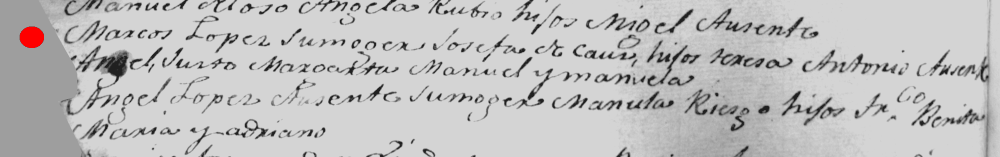 Manuel Aloso Angela Rubio hijos Migel Ausente
Marcos Lopez Sumoger Josefa de Caus, hijos teresa Antonio Ausente
Angel, Justo Margarita Manuel y manuela
Angel Lopez Ausente Sumoger Manula Riesgo hijos Fr.co Benita
Maria y adriano